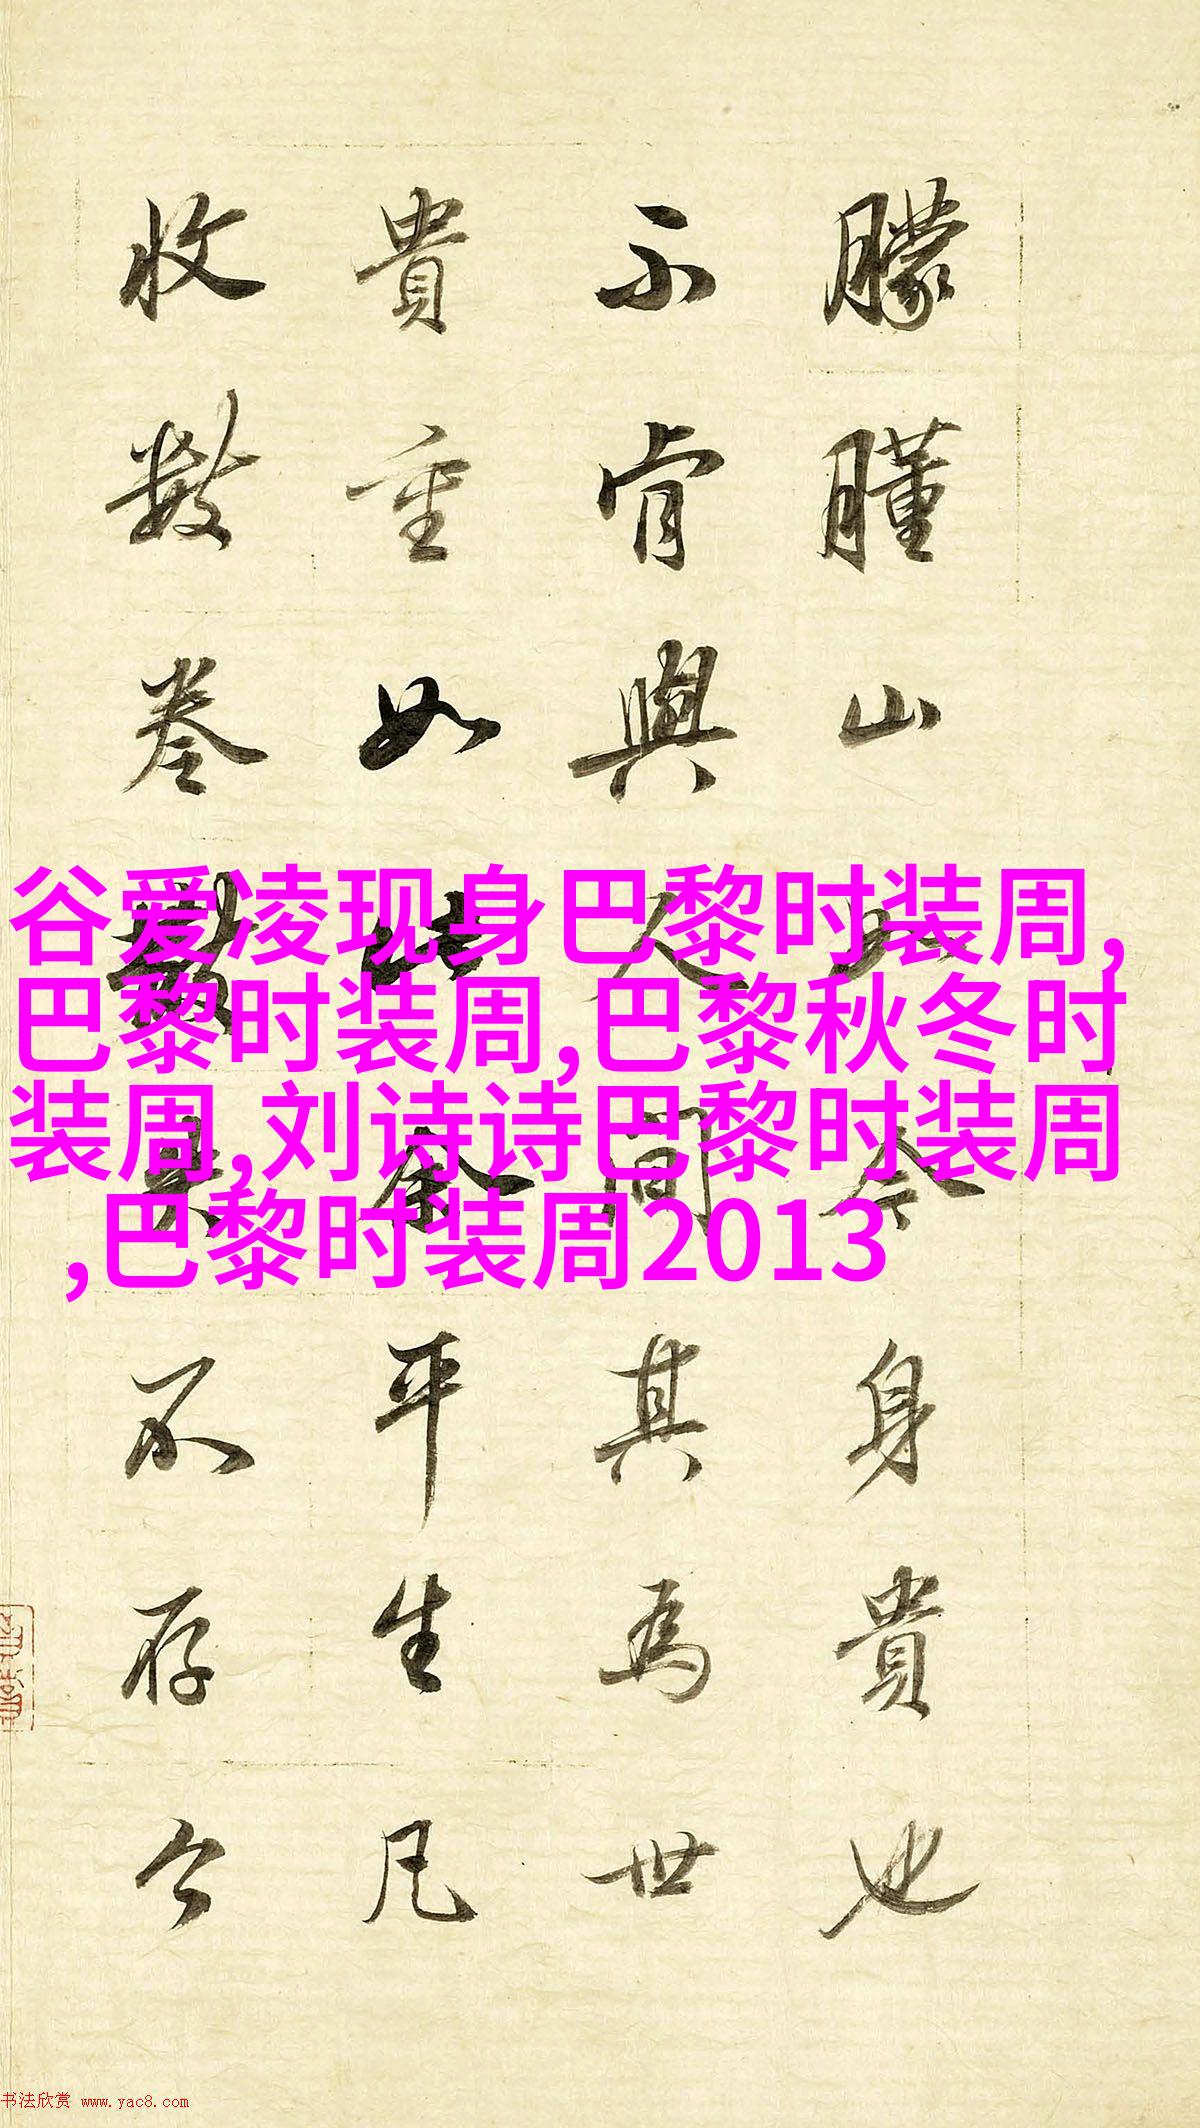 朦朣山身貴也
不肯與人間其為世
貴重如此余平生凡
收數卷不存今
谷爱凌现身巴黎时装周,
巴黎时装周,巴黎秋冬时
装周,刘诗诗巴黎时装周
,巴黎时装周2013
书法欣赏 www.yac8.com